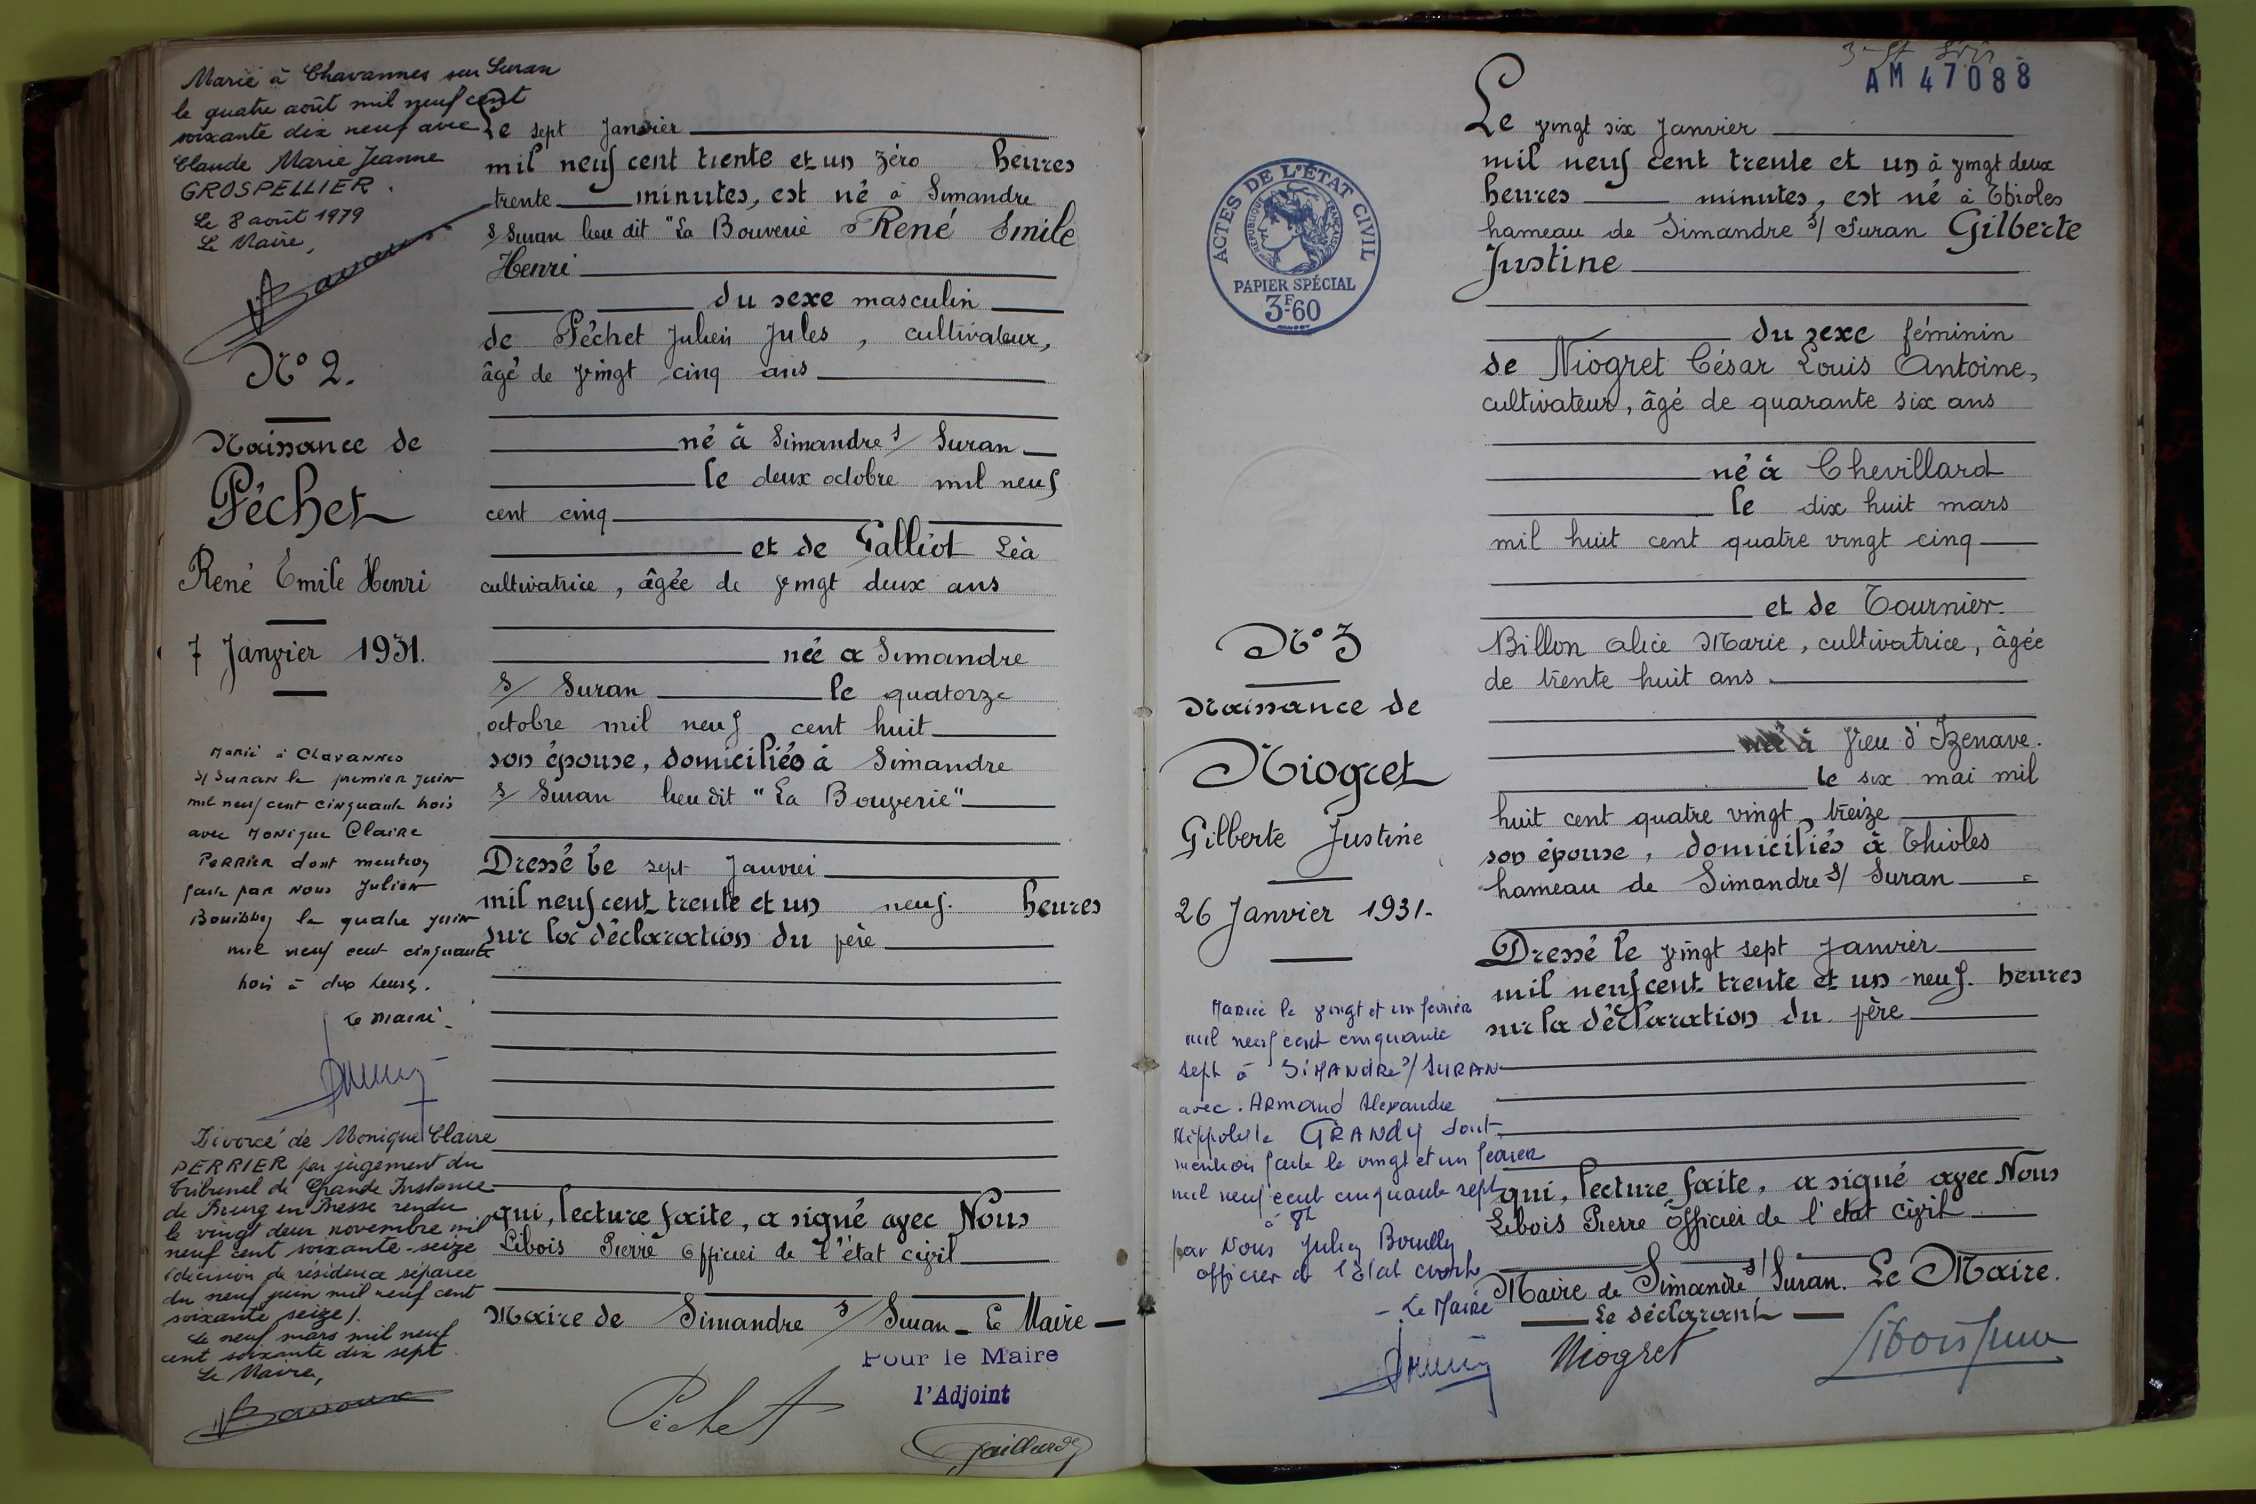 Marié à Chavannes sur Suran
le quatre août mil neuf cent
soixante dix neuf avec
Claude Marie Jeanne
GROSPELLIER.
Le 8 août 1979
Le Maire,
N° 2.
Naissance de
Péchet
René Emile Henri
7 Janvier 1931.
Marié à Chavannes
s/ Suran le premier juin
mil neuf cent cinquante trois
avec Monique Claire
PERRIER dont mention
faite par nous Julien
le quatre juin
mil neuf cent cinquante
trois à dix heures.
Le Maire
Divorcé de Monique Claire
PERRIER par jugement du
Tribunal de Grande Instance
de Bourg en Bresse rendu
le vingt deux novembre mil
neuf cent soixante-seize
(décision de résidence séparée
du neuf juin mil neuf cent
soixante seize).
Le neuf mars mil neuf
cent soixante dix sept.
Le Maire,
Le sept Janvier
mil neuf cent trente et un zéro heures
trente minutes, est né à Simandre
s/ Suran lieu dit "La Bouverie René Emile
Henri
du sexe masculin
de Péchet Julien Jules, cultivateur,
âgé de vingt cinq ans
né à Simandre s/ Suran
le deux octobre mil neuf
cent cinq
et de Galliot Léa
cultivatrice, âgée de vingt deux ans
née à Simandre
s/ Suran le quatorze
octobre mil neuf cent huit
son épouse, domiciliés à Simandre
s/ Suran lieu dit "La Bouverie"
Dressé le sept Janvier
mil neuf cent trente et un neuf heures
sur la déclaration du père
qui, lecture faite, a signé avec Nous
Libois Pierre Officier de l'état civil
Maire de Simandre s/ Suran - Le Maire
Pour le Maire
l'Adjoint
Péchet
AM 47088
ACTES DE L'ÉTAT CIVIL
RÉPUBLIQUE FRANÇAISE
PAPIER SPÉCIAL
3F60
N° 3
Naissance de
Niogret
Gilberte Justine
26 Janvier 1931.
Mariée le vingt et un février
mil neuf cent cinquante
sept à SIMANDRE s/ SURAN
avec Armand Alexandre
Hippolyte GRANDY dont
mention faite le vingt et un février
mil neuf cent cinquante sept
à 8h
par Nous Julien
officier de l'Etat civil
Le Maire
Le vingt six Janvier
mil neuf cent trente et un à vingt deux
heures minutes, est né à Thioles
hameau de Simandre s/ Suran Gilberte
Justine
du sexe féminin
de Niogret César Louis Antoine,
cultivateur, âgé de quarante six ans
né à Chevillard
le dix huit mars
mil huit cent quatre vingt cinq
et de Tournier-
Billon Alice Marie, cultivatrice, âgée
de trente huit ans
née à Vieu d'Izenave.
le six mai mil
huit cent quatre vingt treize
son épouse, domiciliés à Thioles
hameau de Simandre s/ Suran
Dressé le vingt sept Janvier
mil neuf cent trente et un neuf heures
sur la déclaration du père
qui, lecture faite, a signé avec Nous
Libois Pierre Officier de l'état civil
Maire de Simandre s/ Suran. Le Maire.
Le déclarant
Niogret